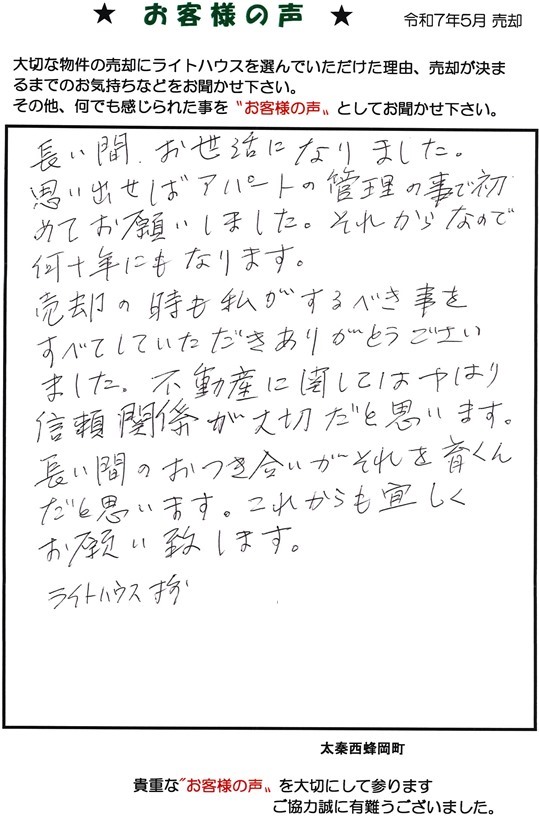 ★ お客様の声 ★ 令和7年5月 売却
大切な物件の売却にライトハウスを選んでいただけた理由、売却が決ま
るまでのお気持ちなどをお聞かせ下さい。
その他、何でも感じられた事を〝お客様の声〟としてお聞かせ下さい。
長い間、お世話になりました。
思い出せばアパートの管理の事で初
めてお願いしました。それからなので
何十年にもなります。
売却の時も私がするべき事を
すべてしていただきありがとうござい
ました。不動産に関してはやはり
信頼関係が大切だと思います。
長い間のおつき合いがそれを育くん
だと思います。これからも宜しく
お願い致します。
ライトハウス
太秦西蜂岡町
貴重な〝お客様の声〟を大切にして参ります
ご協力誠に有難うございました。